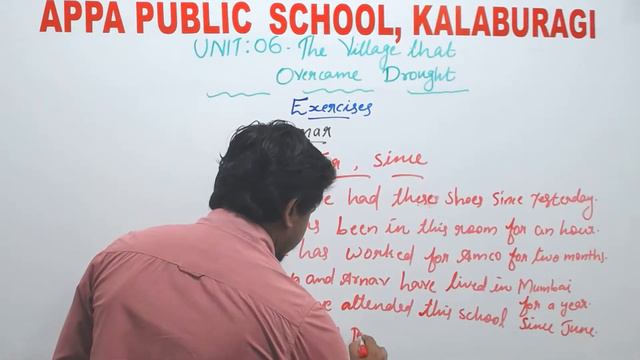 APPA PUBLIC SCHOOL, KALABURAGI
UNIT: 06. The Village that
Overcame Drought
Exercises
, since
had these shoes since yesterday.
been in this room for an hour.
has worked for Amco for two months.
and Arnav have lived in Mumbai
for a year.
attended this school since June.